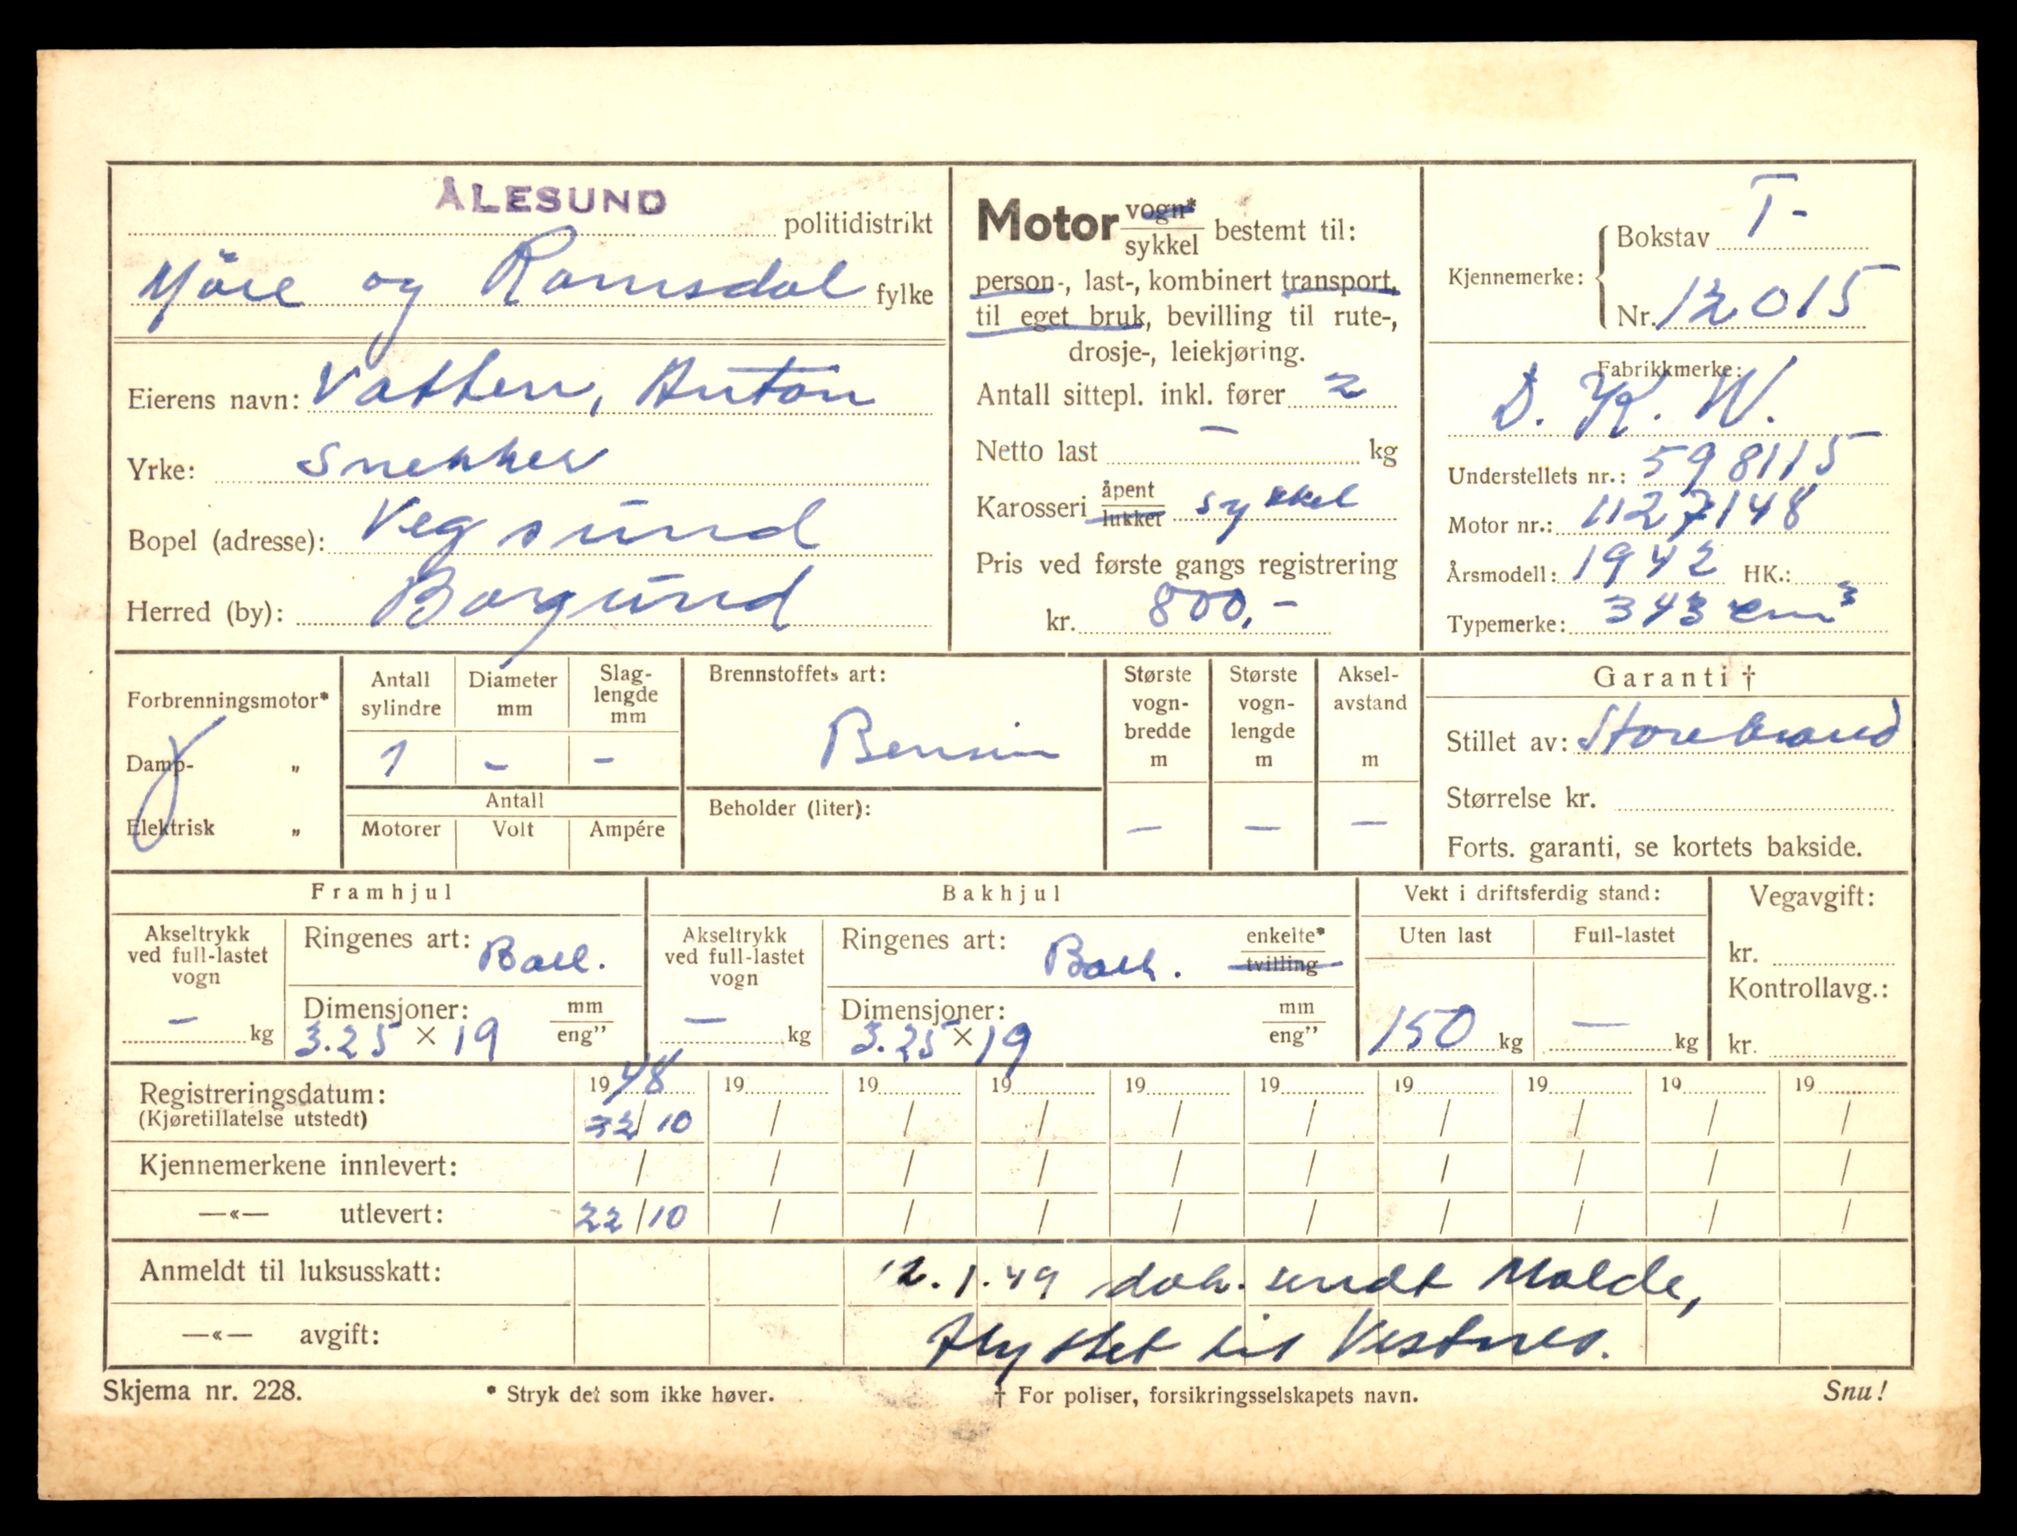 ÅLESUND politidistrikt
Möre og Romsdal fylke
Eierens navn: Vatten, Anton
Yrke: Snekker
Bopel (adresse): Vegsund
Herred (by): Borgund
Motor vogn* / sykkel bestemt til:
person-, last-, kombinert transport,
til eget bruk, bevilling til rute-,
drosje-, leiekjøring.
Antall sittepl. inkl. fører 2
Netto last – kg
Karosseri åpent / lukket sykkel
Pris ved første gangs registrering
kr. 800,-
Kjennemerke: Bokstav T-
Nr. 12015
Fabrikkmerke:
D. K. W.
Understellets nr.: 598115
Motor nr.: 1127148
Årsmodell: 1942 HK.:
Typemerke: 343 cm³
Forbrenningsmotor*
Damp- „
Elektrisk „
Antall sylindre
Diameter mm
Slag-lengde mm
1 – –
Antall
Motorer Volt Ampére
Brennstoffets art:
Bensin
Beholder (liter):
Største vogn-bredde m
Største vogn-lengde m
Aksel-avstand m
– – –
Garanti †
Stillet av: Storebrand
Størrelse kr.
Forts. garanti, se kortets bakside.
Framhjul
Akseltrykk ved full-lastet vogn
– kg
Ringenes art: Ball.
Dimensjoner: mm / eng”
3.25 × 19
Bakhjul
Akseltrykk ved full-lastet vogn
– kg
Ringenes art: Ball. enkelte* / tvilling
Dimensjoner: mm / eng”
3.25 × 19
Vekt i driftsferdig stand:
Uten last Full-lastet
150 kg – kg
Vegavgift:
kr.
Kontrollavg.:
kr.
Registreringsdatum: 1948 19 19 19 19 19 19 19 19 19
(Kjøretillatelse utstedt) 22/10 / / / / / / / / /
Kjennemerkene innlevert: / / / / / / / / / /
—«— utlevert: 22/10 / / / / / / / / /
Anmeldt til luksusskatt: 12.1.49 dok. sendt Molde,
—«— avgift: flyttet til Vestnes.
Skjema nr. 228. * Stryk det som ikke høver. † For poliser, forsikringsselskapets navn. Snu!